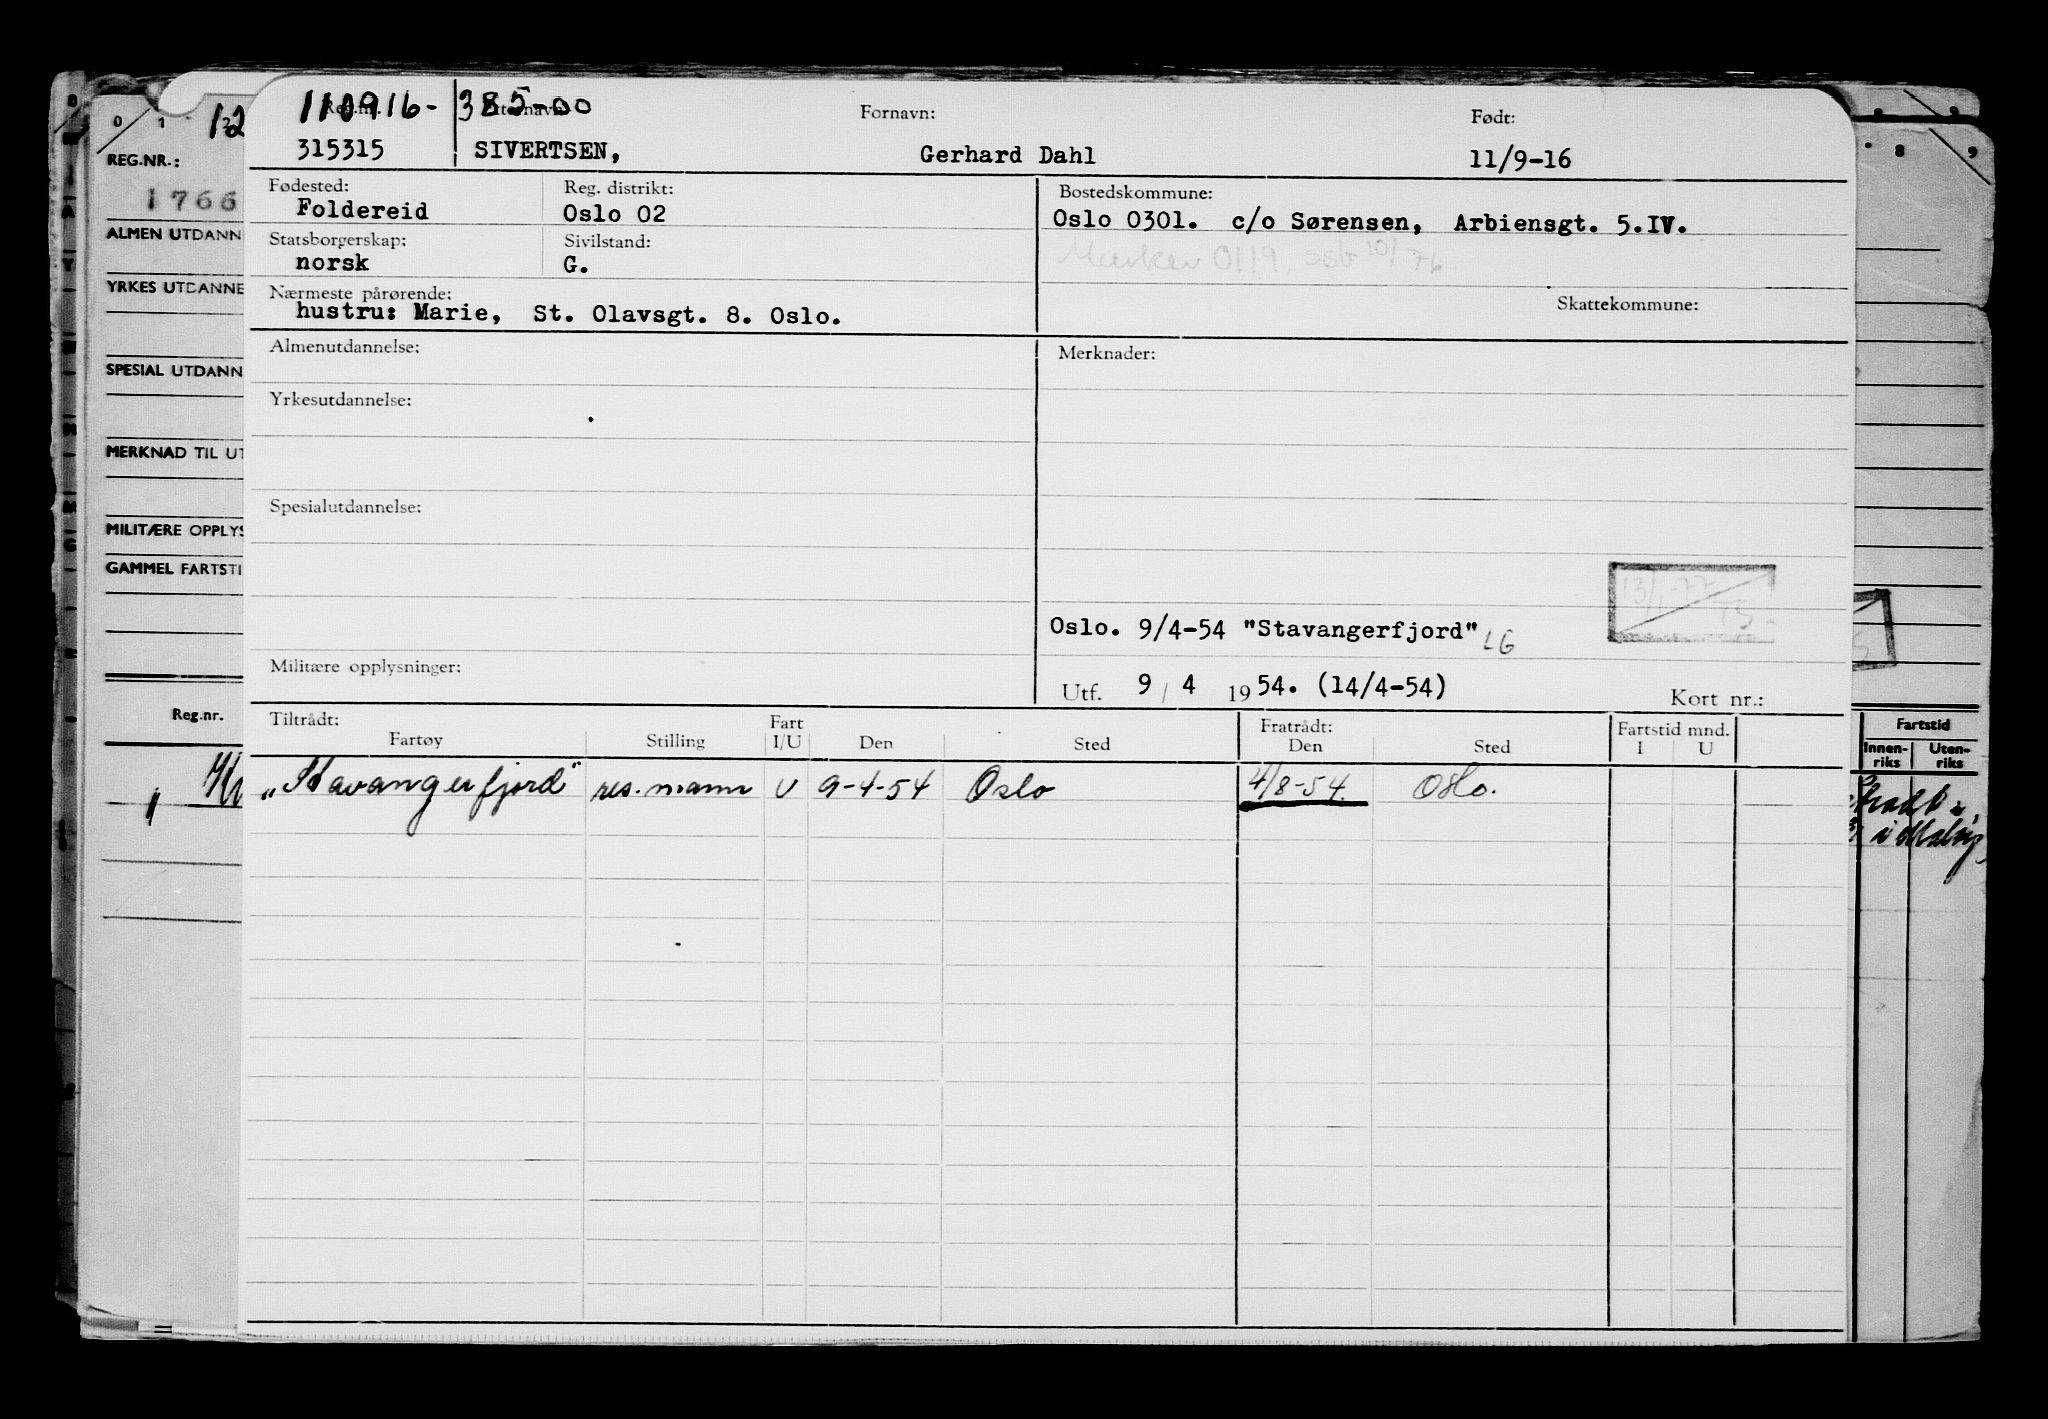 110916- 385-00
Reg.nr. Etternavn: Fornavn: Født:
315315 SIVERTSEN, Gerhard Dahl 11/9-16
Fødested: Reg. distrikt: Bostedskommune:
Foldereid Oslo 02 Oslo 0301. c/o Sørensen, Arbiensgt. 5.IV.
Statsborgerskap: Sivilstand: Marker 0119, 10/76
norsk G.
Nærmeste pårørende: Skattekommune:
hustru: Marie, St. Olavsgt. 8. Oslo.
Almenutdannelse: Merknader:
Yrkesutdannelse:
Spesialutdannelse:
13/1-77
Oslo. 9/4-54 "Stavangerfjord" LG
Militære opplysninger:
Utf. 9/4 1954. (14/4-54) Kort nr.:
Tiltrådt: Fart Fratrådt: Fartstid mnd.
Fartøy Stilling I/U Den Sted Den Sted I U
"Stavangerfjord" res.mann U 9-4-54 Oslo 4/8-54. Oslo.
0 1 12
REG.NR.:
1766
ALMEN UTDANN
YRKES UTDANNE
SPESIAL UTDANN
MERKNAD TIL UT
MILITÆRE OPPLYS
GAMMEL FARTSTI
Reg.nr.
8 9
Fartstid
Innen- Uten-
riks riks